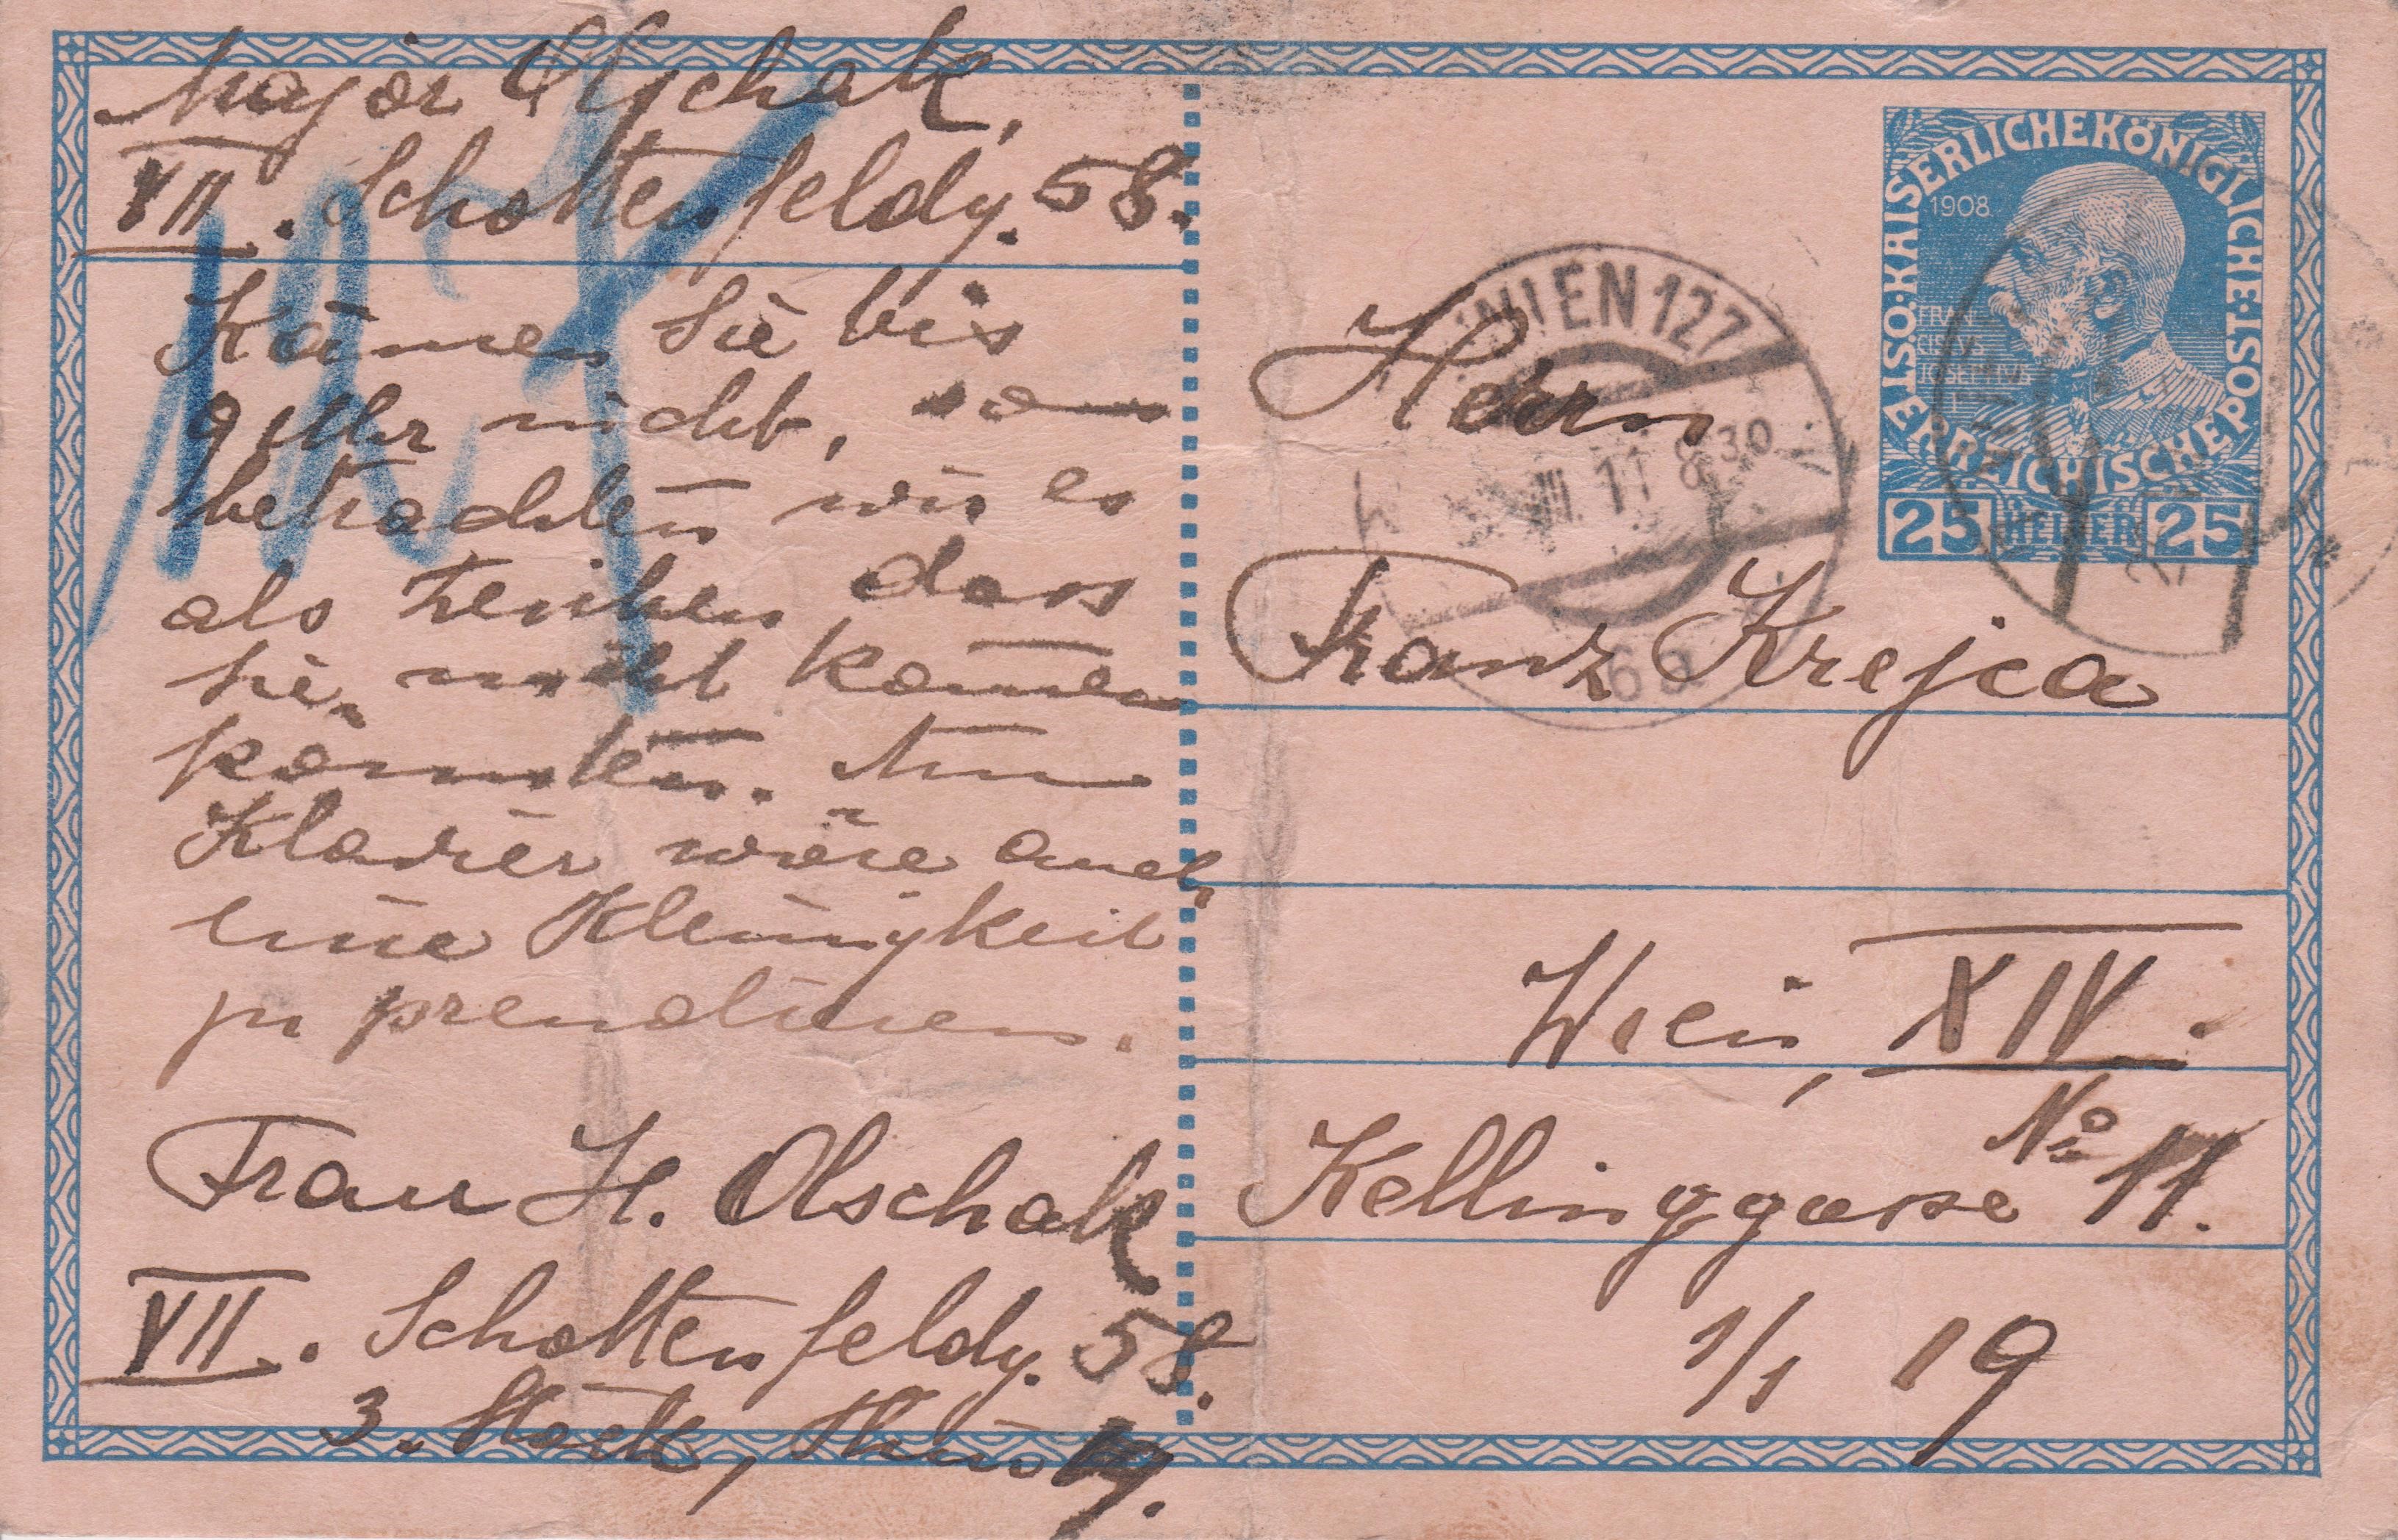 Major Olschak,
VII. Schottenfeldg. 58.
Kämen Sie bis
9 Uhr nicht, so
betrachten wir es
als Zeichen dass
Sie nicht kommen
konnten. Am
Klavier wäre auch
eine Kleinigkeit
zu
Frau H. Olschak
VII. Schottenfeldg. 58.
3. Stock, Thür 19.
KAISERLICHEKÖNIGLICHE
ÆRREICHISCHEPOST
1908
FRAN
CISCVS
JOSEPHVS
I
25 HELLER 25
WIEN 127
III 11 8 30
6a
Herrn
Franz Krejca
Wien, XIV.
No 11.
Kellinggasse
1/1 19